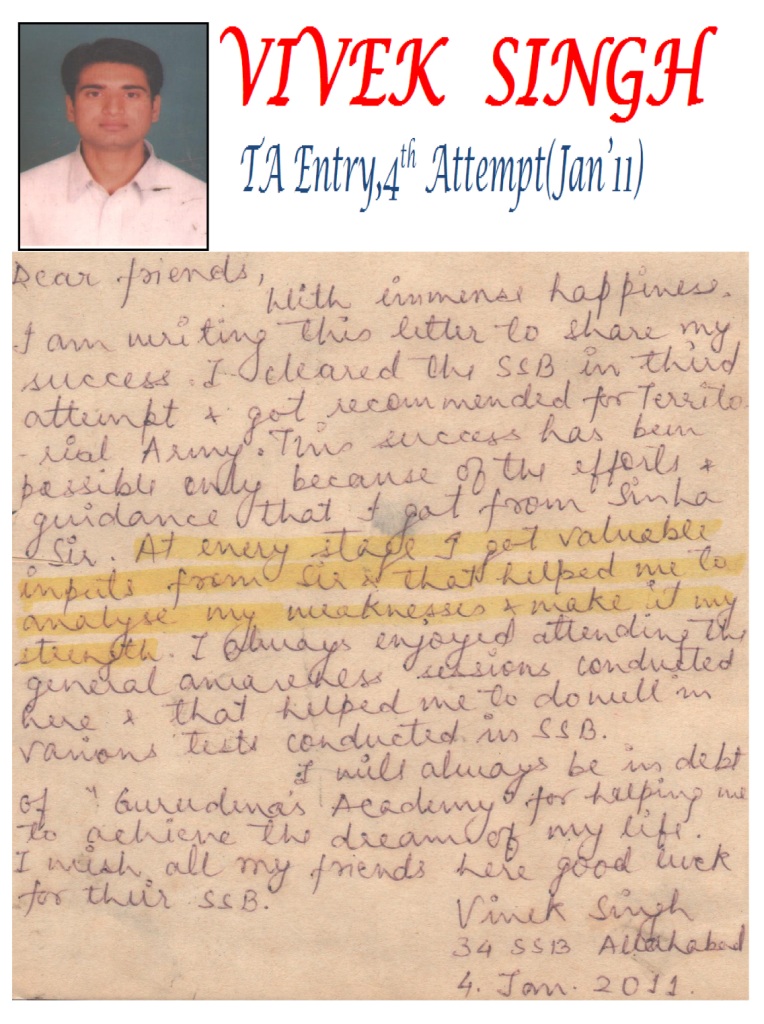 VIVEK SINGH
TA Entry,4th Attempt(Jan'11)
Dear friends,
With immense happiness.
I am writing this letter to share my
success. I cleared the SSB in third
attempt & got recommended for Territo
-rial Army. This success has been
possible only because of the efforts &
guidance that I got from Sinha
Sir. At every stage I got valuable
inputs from Sir & that helped me to
analyse my weaknesses & make it my
strength. I always enjoyed attending the
general awareness sessions conducted
here & that helped me to do well in
various tests conducted in SSB.
I will always be in debt
of "Gurudena's Academy" for helping me
to achieve the dream of my life.
I wish all my friends here good luck
for their SSB.
Vivek Singh
34 SSB Allahabad
4. Jan. 2011.